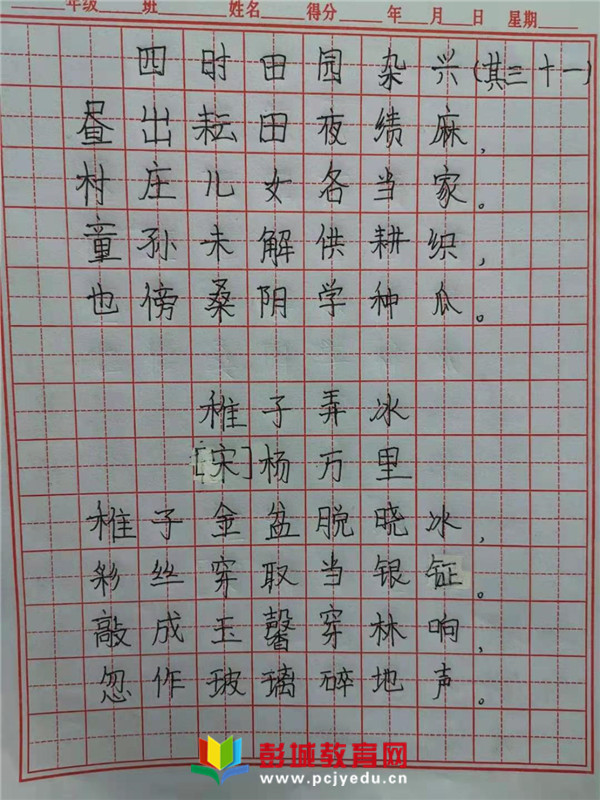 年级 班 姓名 得分 年 月 日 星期
四时田园杂兴(其三十一)
昼出耘田夜绩麻，
村庄儿女各当家。
童孙未解供耕织，
也傍桑阴学种瓜。
稚子弄冰
[宋]杨万里
稚子金盆脱晓冰，
彩丝穿取当银钲。
敲成玉馨穿林响，
忽作玻璃碎地声。
彭城教育网
www.pcjyedu.cn